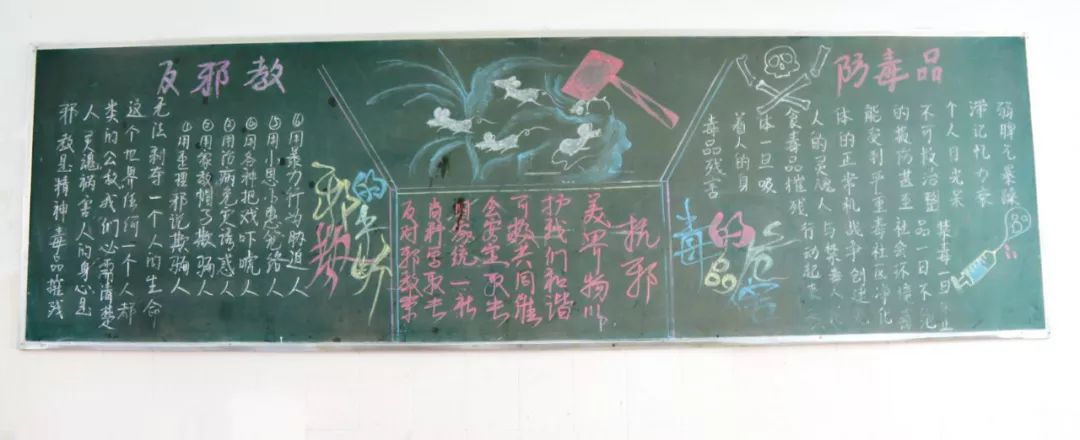 反邪教
邪教是精神毒品摧残
人灵魂祸害人的身心是
类的公敌我们必需清楚
这个世界法何一个人都
无法剥夺一个人的生命
①用歪理邪说欺骗人
②用宗教帽子欺骗人
③用防病免灾诱惑人
④用各种把戏吓唬人
⑤用小恩小惠笼络人
⑥用暴力行为胁迫人
邪教
的
抗邪
美界物
护我们和谐
可教共同维
会安定取去
统一社
尚科写取去
反对邪教
防毒品
毒品残害
着人的身
体一旦吸
食毒品摧残
人的灵魂
体的正常机
能受到严重
的损防甚至
不可救治
个人目光呆
滞记忆力衰
弱脾气暴躁
禁毒一日
品一日不绝
社会环境
毒社区净化
战争创建无
与禁毒人
行动起来
毒品
的
危害